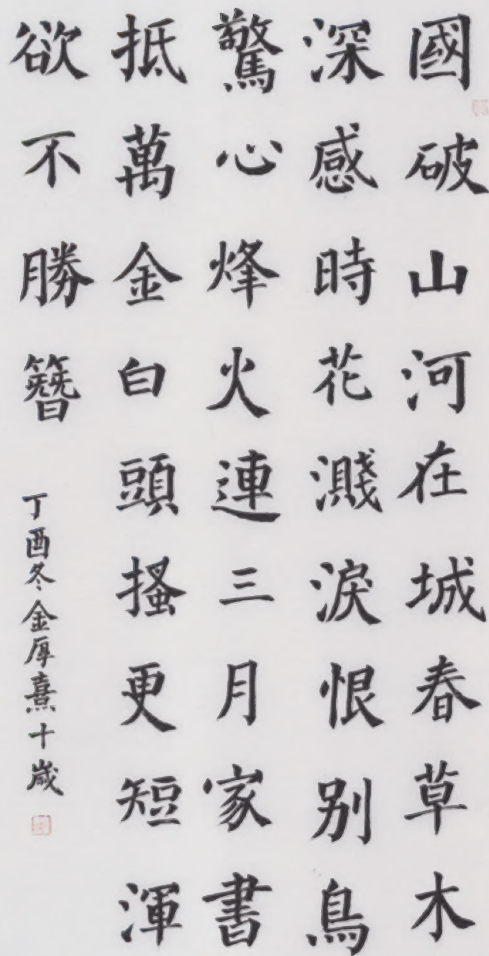 國破山河在城春草木
深感時花濺淚恨别鳥
驚心烽火連三月家書
抵萬金白頭搔更短渾
欲不勝簪
丁酉冬金厚熹十歲